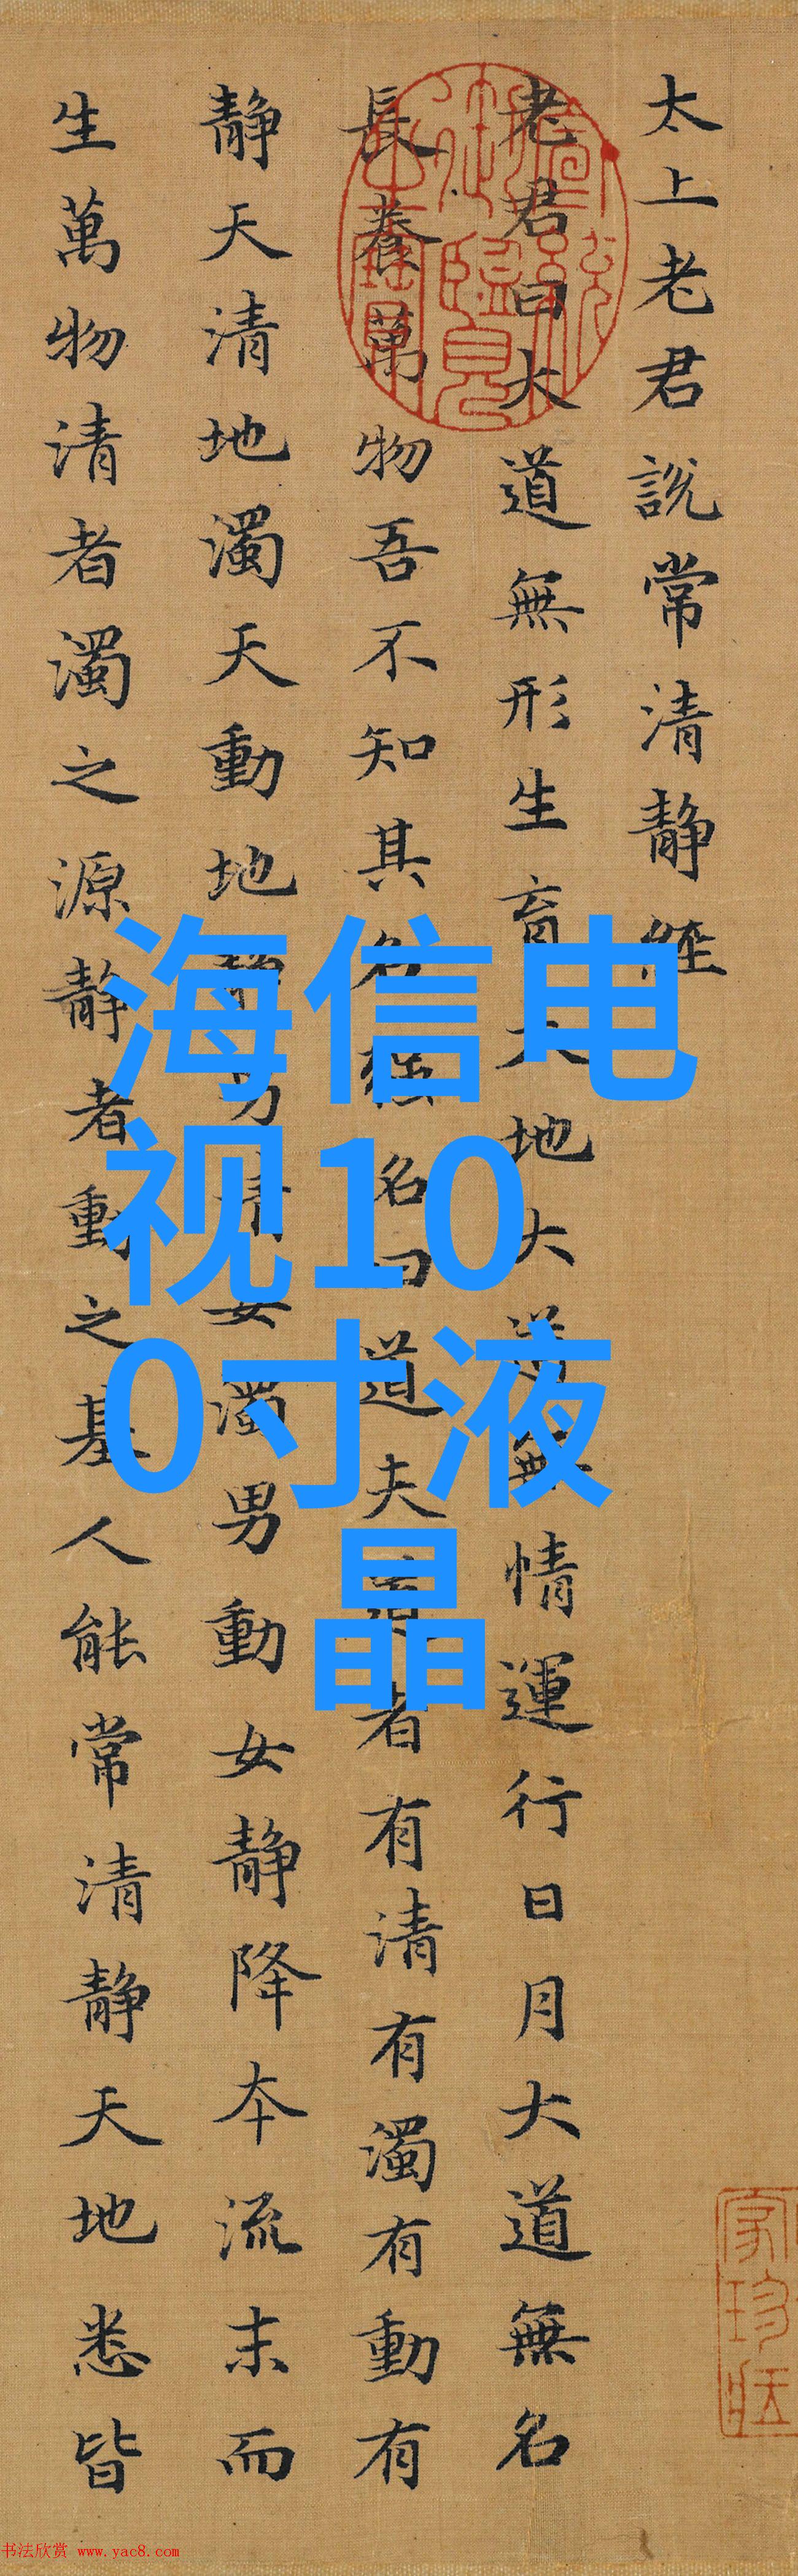 太上老君說常清静經
老君曰大道無形生育天地大道無情運行日月大道無名
長養萬物吾不知其名強名曰道夫道者有清有濁有動有
静天清地濁天動地静男清女濁男動女静降本流末而
生萬物清者濁之源静者動之基人能常清静天地悉皆
宣統御覽之寶
海信电
视10
0寸液
晶
书法欣赏 www.yac8.com